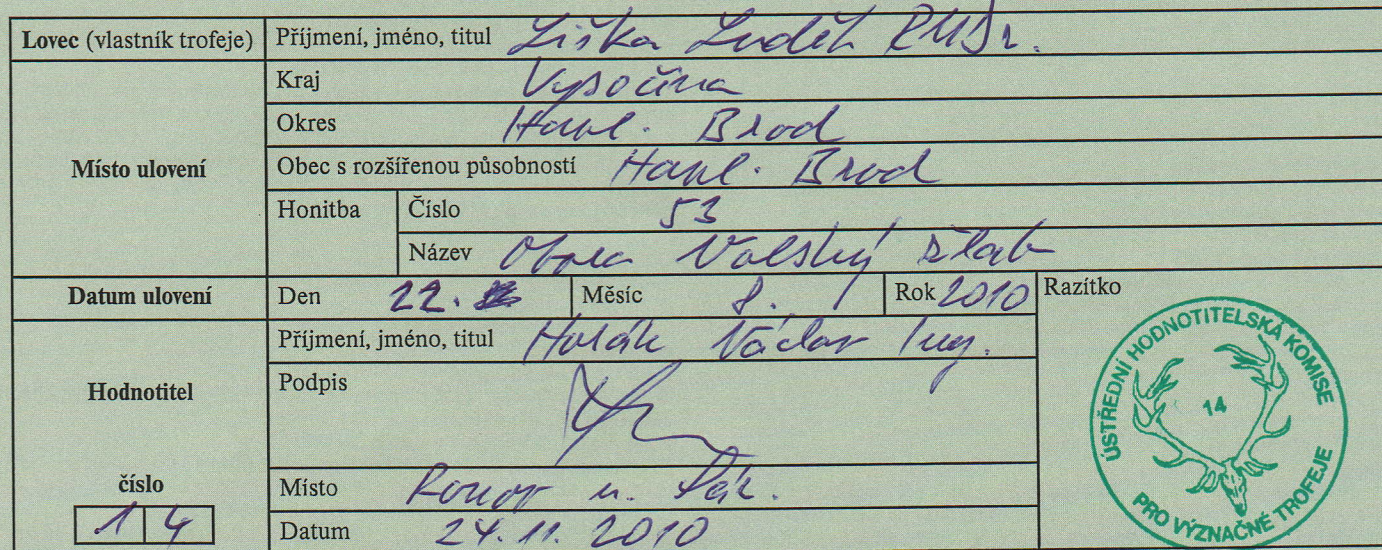 Lovec (vlastník trofeje) Příjmení, jméno, titul Liška Luděk
Místo ulovení
Kraj Vysočina
Okres Havl. Brod
Obec s rozšířenou působností Havl. Brod
Honitba Číslo 53
Název Obora Volský žlab
Datum ulovení Den 22. Měsíc 8. Rok 2010 Razítko
Hodnotitel
Příjmení, jméno, titul Václav Ing.
Podpis
číslo 14
Místo Ronov n.
Datum 24. 11. 2010
ÚSTŘEDNÍ HODNOTITELSKÁ KOMISE
14
PRO VÝZNAČNÉ TROFEJE